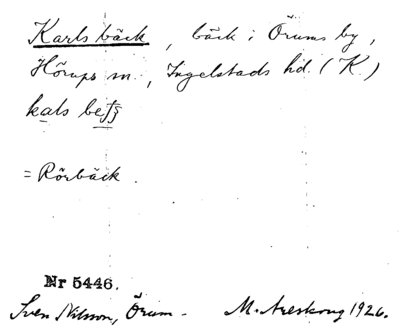 Karls bäck, bäck i Örums by,
Hörups sn., Ingelstads hd. (K)
kals
= Rörbäck.
Nr 5446.
Sven Nilsson, Örum. M. Areskoug 1926.